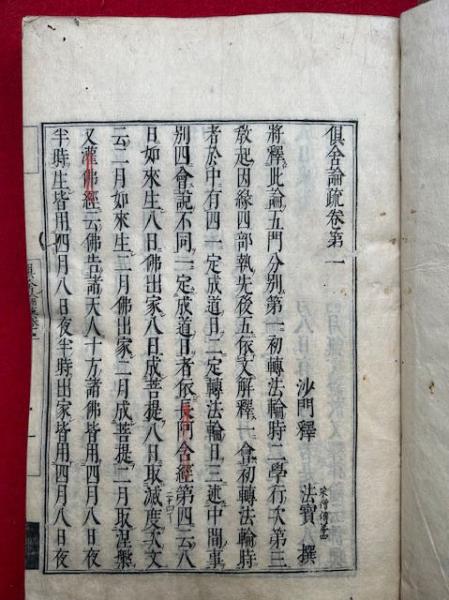 俱舍論疏卷第一
沙門釋 法寶 撰
宋僧傳第四
將釋此論五門分別第一初轉法輪時二學行次第三
教起因緣四部執先後五依文解釋一會初轉法輪時
者於中有四一定成道日二定轉法輪日三述中間事
別四會說不同一定成道日者依長阿含經第四云八
日如來生八日佛出家八日成菩提八日取滅度次文
云二月如來生二月佛出家二月成菩提二月取涅槃
又灌佛經云佛告諸天人十方諸佛皆用四月八日夜
半時生皆用四月八日夜半時出家皆用四月八日夜